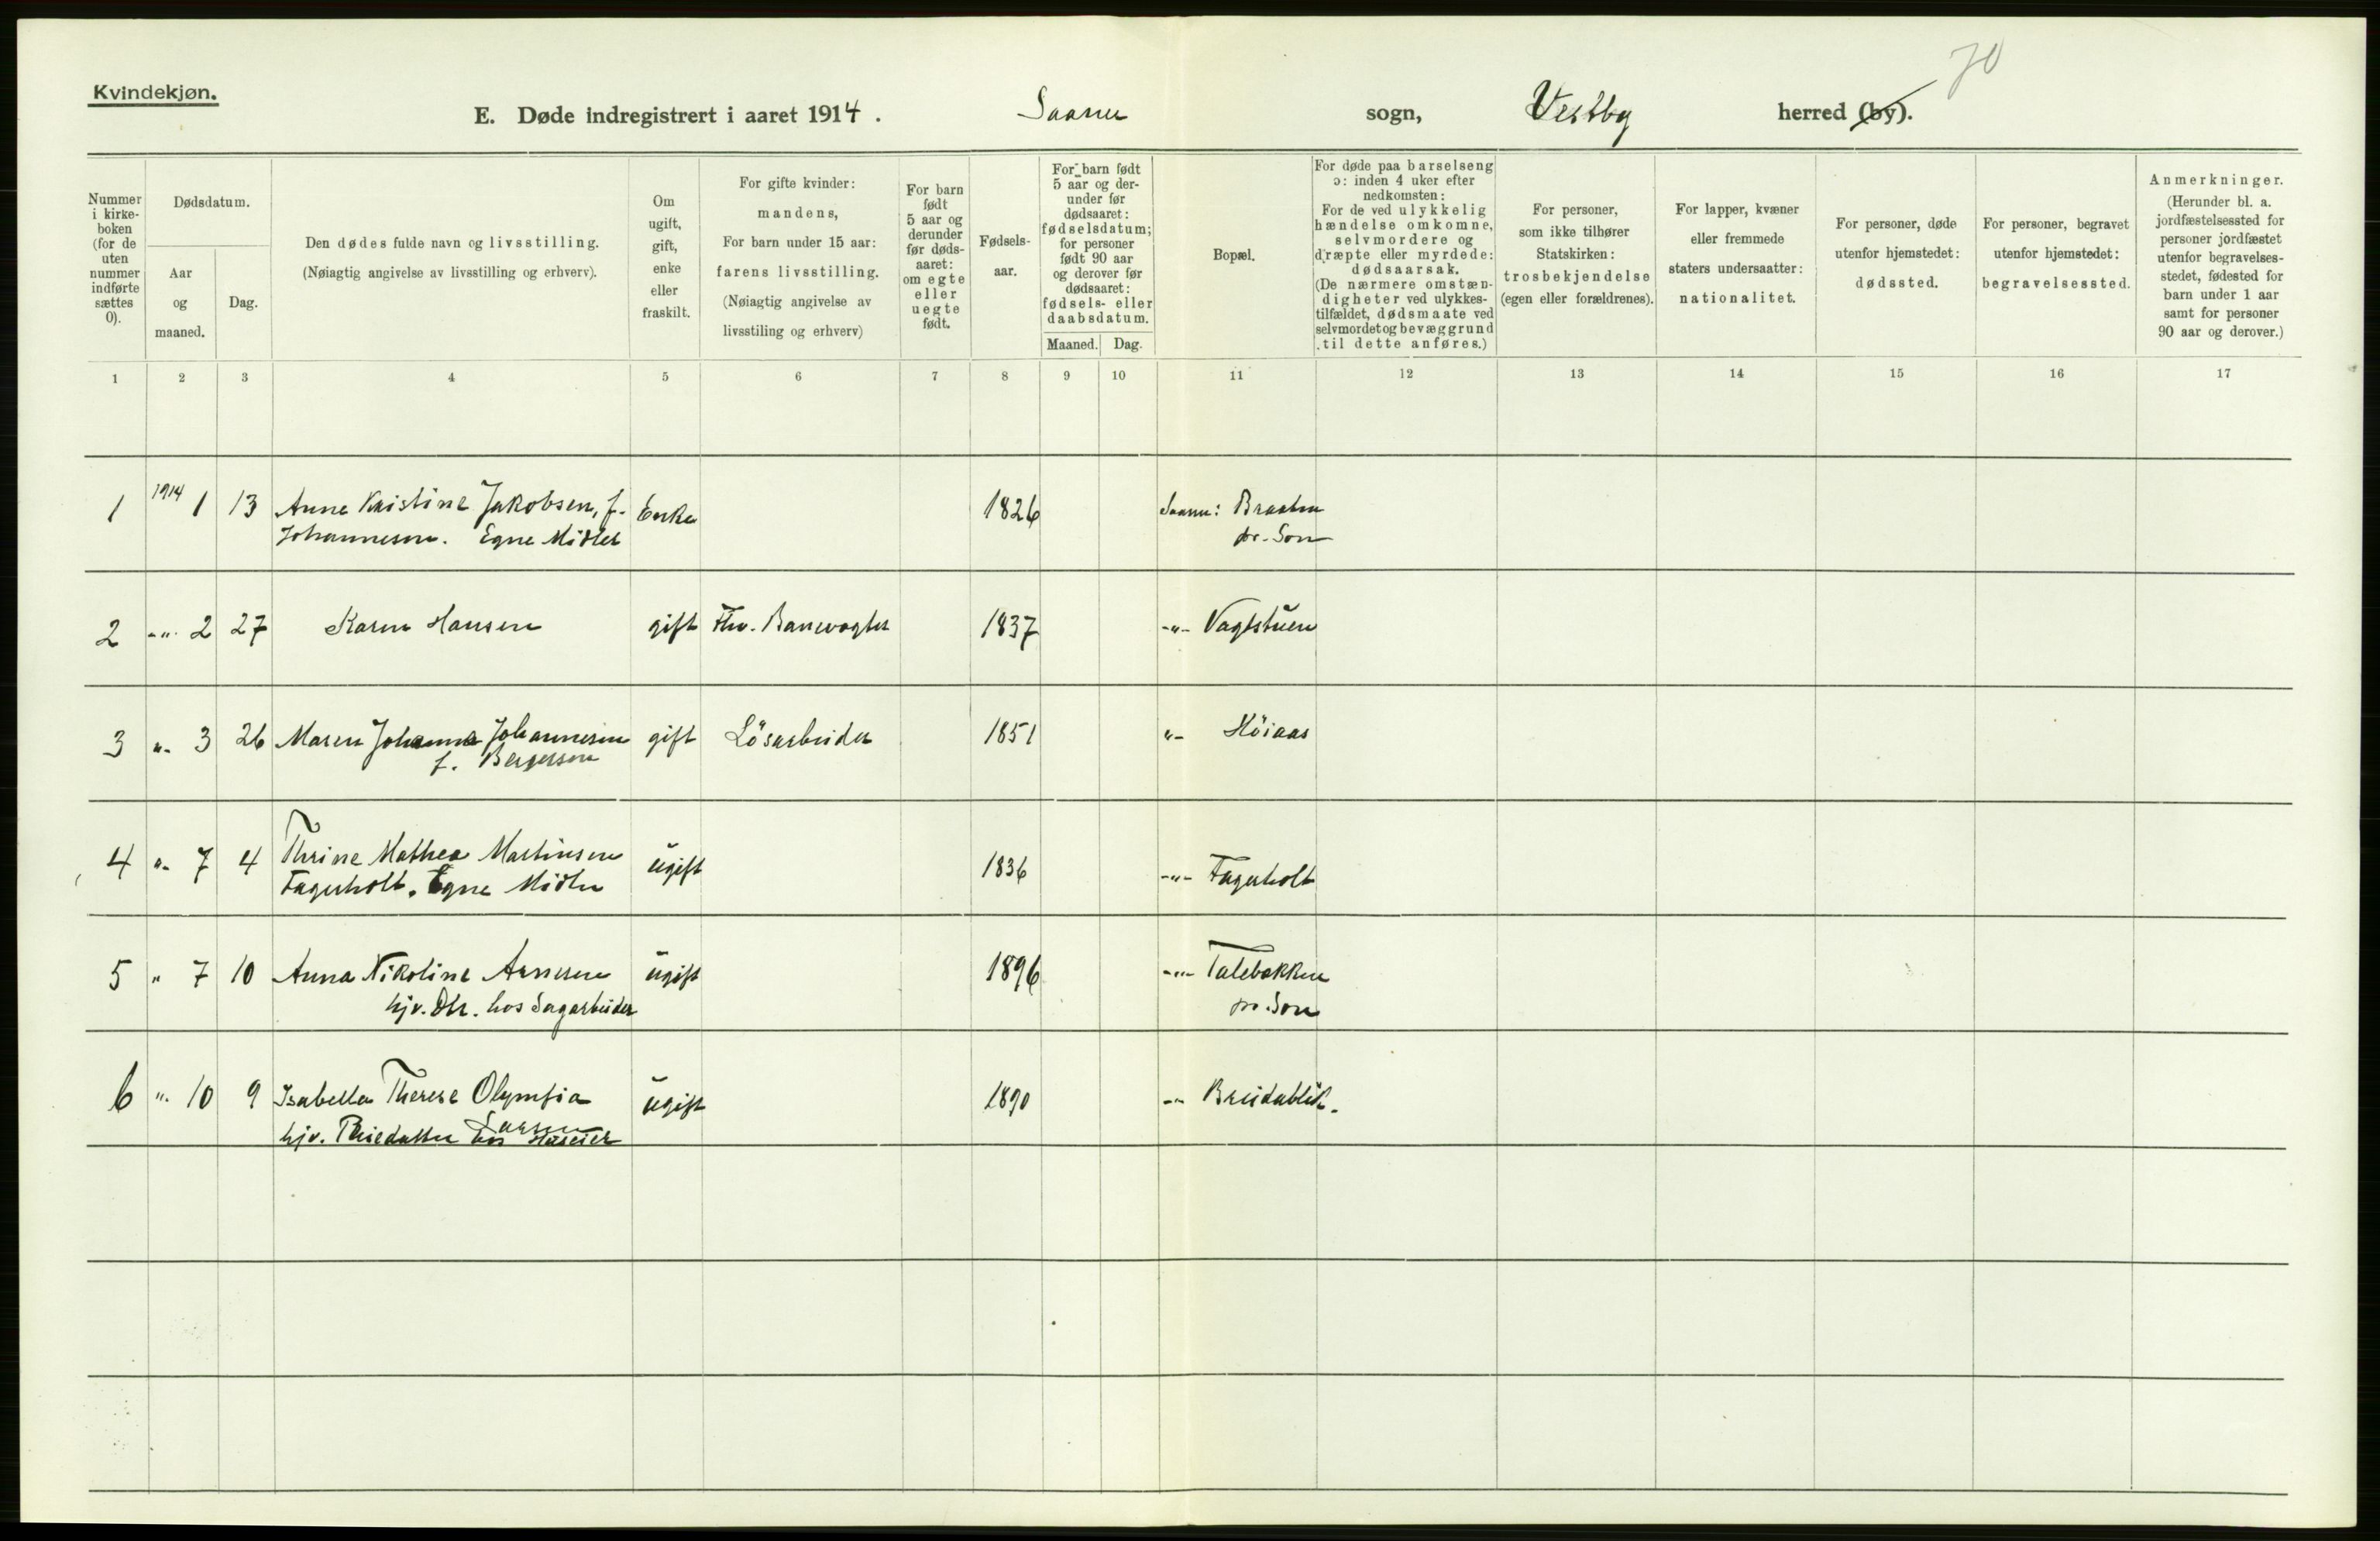 70
Kvindekjøn.
E. Døde indregistrert i aaret 1914. Saaner sogn, Vestby herred (by).
Nummer i kirkeboken (for de uten nummer indførte sættes 0).
Dødsdatum.
Aar og maaned.
Dag.
Den dødes fulde navn og livsstilling.
(Nøiagtig angivelse av livsstilling og erhverv).
Om ugift, gift, enke eller fraskilt.
For gifte kvinder:
mandens,
For barn under 15 aar:
farens livsstilling.
(Nøiagtig angivelse av
livsstiling og erhverv)
For barn født 5 aar og derunder før dødsaaret: om egte eller uegte født.
Fødselsaar.
For barn født 5 aar og derunder før dødsaaret: fødselsdatum; for personer født 90 aar og derover før dødsaaret: fødsels- eller daabsdatum.
Maaned. Dag.
Bopæl.
For døde paa barselseng ɔ: inden 4 uker efter nedkomsten:
For de ved ulykkelig hændelse omkomne, selvmordere og dræpte eller myrdede: dødsaarsak.
(De nærmere omstændigheter ved ulykkestilfældet, dødsmaate ved selvmordet og bevæggrund til dette anføres.)
For personer, som ikke tilhører Statskirken: trosbekjendelse (egen eller forældrenes).
For lapper, kvæner eller fremmede staters undersaatter: nationalitet.
For personer, døde utenfor hjemstedet: dødssted.
For personer, begravet utenfor hjemstedet: begravelsessted.
Anmerkninger.
(Herunder bl. a. jordfæstelsessted for personer jordfæstet utenfor begravelsesstedet, fødested for barn under 1 aar samt for personer 90 aar og derover.)
1 2 3 4 5 6 7 8 9 10 11 12 13 14 15 16 17
1 1914 1 13 Anne Kristine Jakobsen, f. Enke 1826 Saaner: Braaten
Johannesen. Egne Midler pr. Son
2 -"- 2 27 Karen Hansen gift Fhv. Banevogter 1837 -"- Vagtstuen
3 "- 3 26 Maren Johanne Johannesen gift Lösarbeider 1851 "- Höiaas
f. Bergersen
4 "- 7 4 Thrine Mathea Martinsen ugift 1836 -"- Fagerholt
Fagerholt. Egne Midler
5 " 7 10 Anna Nikoline Arnesen ugift 1896 -"- Talebakken
hjv. Dtr. hos Sagarbeider pr. Son
6 "- 10 9 Isabella Therese Olymfia ugift 1890 -"- Breidablik.
Larsen
hjv. Pleiedatter hos Huseier